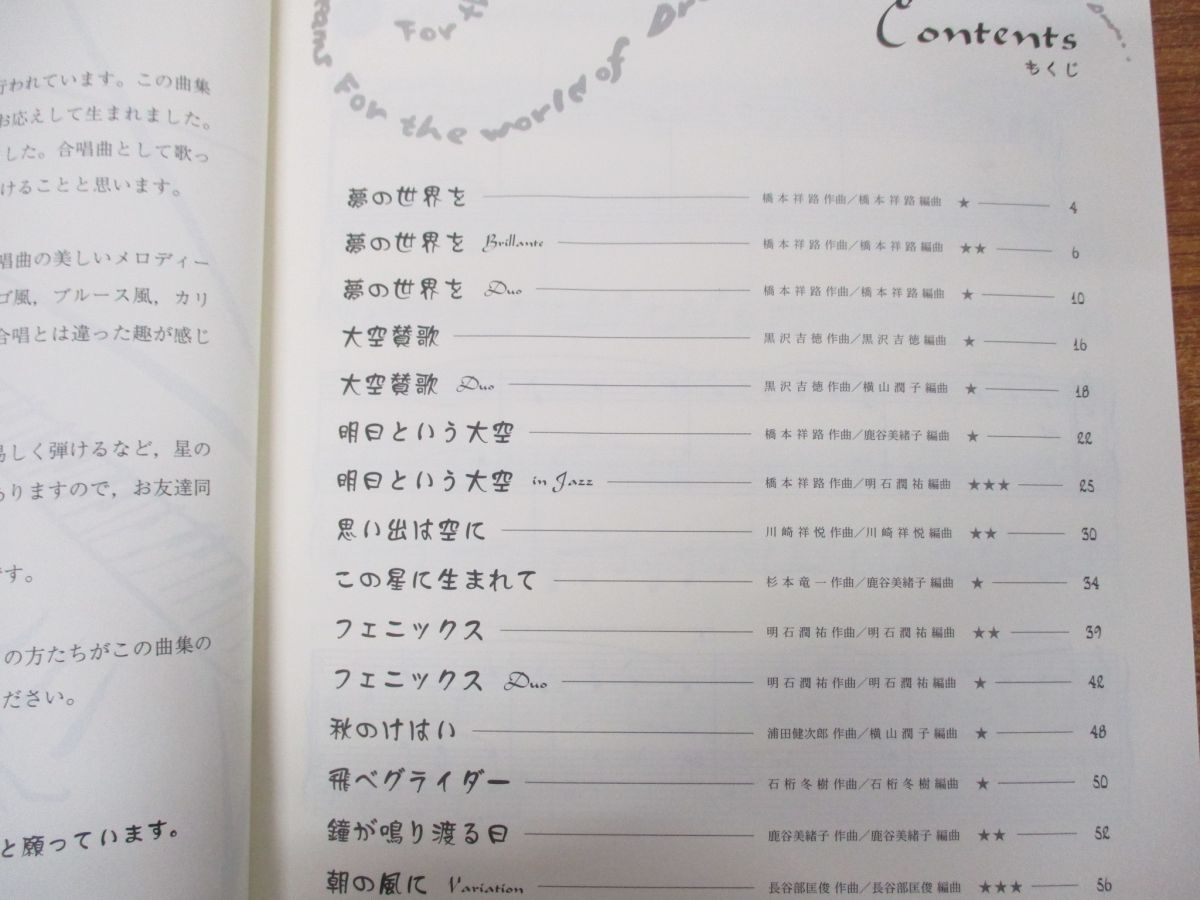 行われています。この曲集
お応えして生まれました。
した。合唱曲として歌っ
けることと思います。
唱曲の美しいメロディー
ゴ風，ブルース風，カリ
合唱とは違った趣が感じ
易しく弾けるなど，星の
ありますので，お友達同
です。
の方たちがこの曲集の
ください。
と願っています。
For
For the world of
Contents
もくじ
夢の世界を 橋本祥路 作曲／橋本祥路 編曲 ★ 4
夢の世界を Brillante 橋本祥路 作曲／橋本祥路 編曲 ★★ 6
夢の世界を Duo 橋本祥路 作曲／橋本祥路 編曲 ★ 10
大空賛歌 黒沢吉徳 作曲／黒沢吉徳 編曲 ★ 16
大空賛歌 Duo 黒沢吉徳 作曲／横山潤子 編曲 ★ 18
明日という大空 橋本祥路 作曲／鹿谷美緒子 編曲 ★ 22
明日という大空 in Jazz 橋本祥路 作曲／明石潤祐 編曲 ★★★ 25
思い出は空に 川崎祥悦 作曲／川崎祥悦 編曲 ★★ 30
この星に生まれて 杉本竜一 作曲／鹿谷美緒子 編曲 ★ 34
フェニックス 明石潤祐 作曲／明石潤祐 編曲 ★★ 39
フェニックス Duo 明石潤祐 作曲／明石潤祐 編曲 ★ 42
秋のけはい 浦田健次郎 作曲／横山潤子 編曲 ★ 48
飛べグライダー 石桁冬樹 作曲／石桁冬樹 編曲 ★ 50
鐘が鳴り渡る日 鹿谷美緒子 作曲／鹿谷美緒子 編曲 ★★ 52
朝の風に Variation 長谷部匡俊 作曲／長谷部匡俊 編曲 ★★★ 56